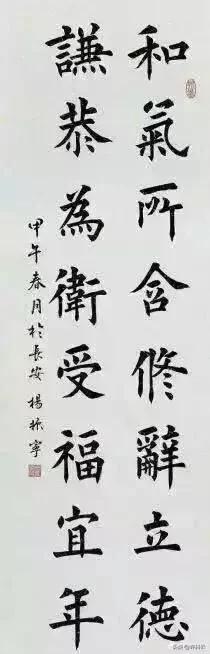 和氣所含修辭立德
謙恭為衛受福宜年
甲午春月於長安 楊振寧